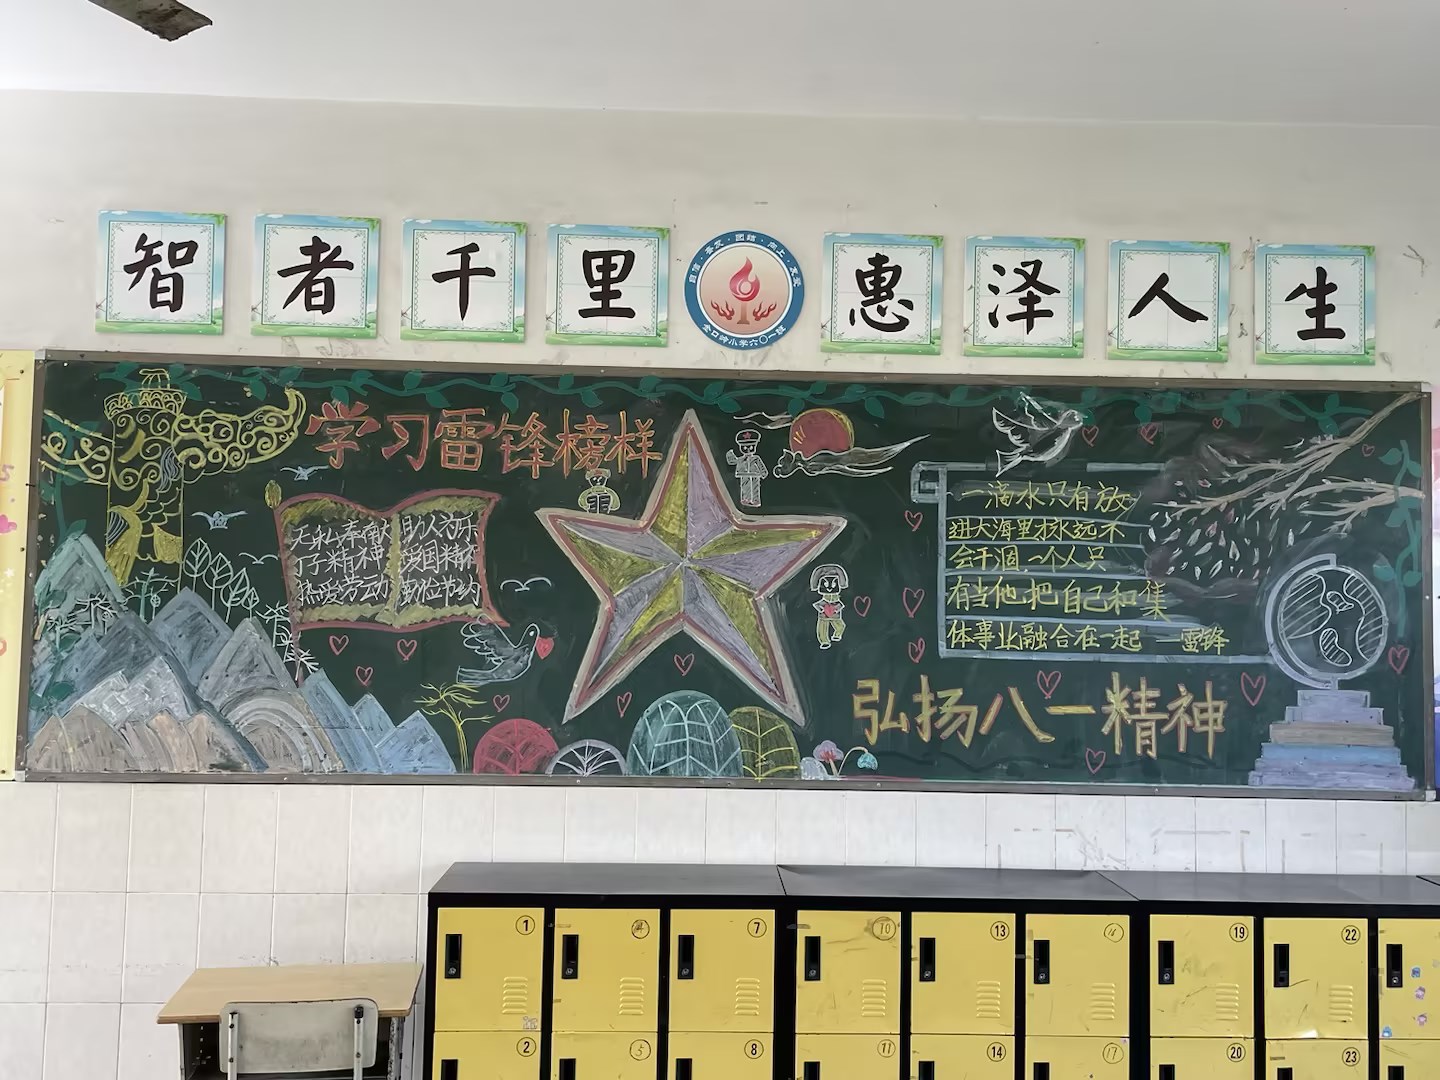 智者千里
惠泽人生
自信·奋发·团结·向上·友爱
金口岭小学六〇一班
学习雷锋榜样
无私奉献 助人为乐
丁子精神 爱国精神
热爱劳动 勤俭节约
一滴水只有放
进大海里才永远不
会干涸一个人只
有当他把自己和集
体事业融合在一起 —雷锋
弘扬八一精神
1 4 7 10 13 16 19 22
2 5 8 11 14 17 20 23